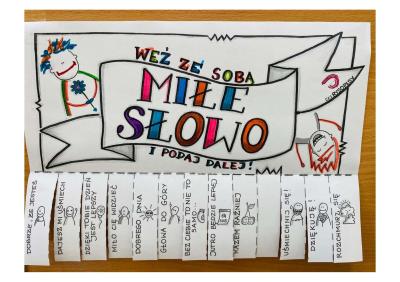 WEŹ ZE SOBĄ
MIŁE
SŁOWO
I PODAJ DALEJ!
DOBRZE, ŻE JESTEŚ
DAJESZ MI UŚMIECH
DZIĘKI TOBIE DZIEŃ
JEST LEPSZY
MIŁO CIĘ WIDZIEĆ
DOBREGO DNIA
GŁOWA DO GÓRY
BEZ CIEBIE TO NIE TO
SAMO...
JUTRO BĘDZIE LEPIEJ
RAZEM RAŹNIEJ
UŚMIECHNIJ SIĘ!
DZIĘKUJĘ!
ROZCHMURZ SIĘ